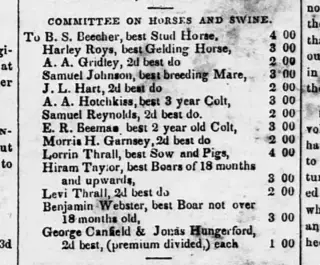 COMMITTEE ON HORSES AND SWINE.
To B. S. Beecher, best Stud Horse, 4 00
Harley Roys, best Gelding Horse, 3 00
A. A. Gridley, 2d best do 2 00
Samuel Johnson, best breeding Mare, 3 00
J. L. Hart, 2d best do 2 00
A. A. Hotchkiss, best 3 year Colt, 3 00
Samuel Reynolds, 2d best do. 2 00
E. R. Beeman, best 2 year old Colt, 3 00
Morris H. Garnsey, 2d best do 2 00
Lorrin Thrall, best Sow and Pigs, 4 00
Hiram Taylor, best Boars of 18 months
and upwards, 3 00
Levi Thrall, 2d best do 2 00
Benjamin Webster, best Boar not over
18 months old, 3 00
George Canfield & Jonas Hungerford,
2d best, (premium divided,) each 1 00